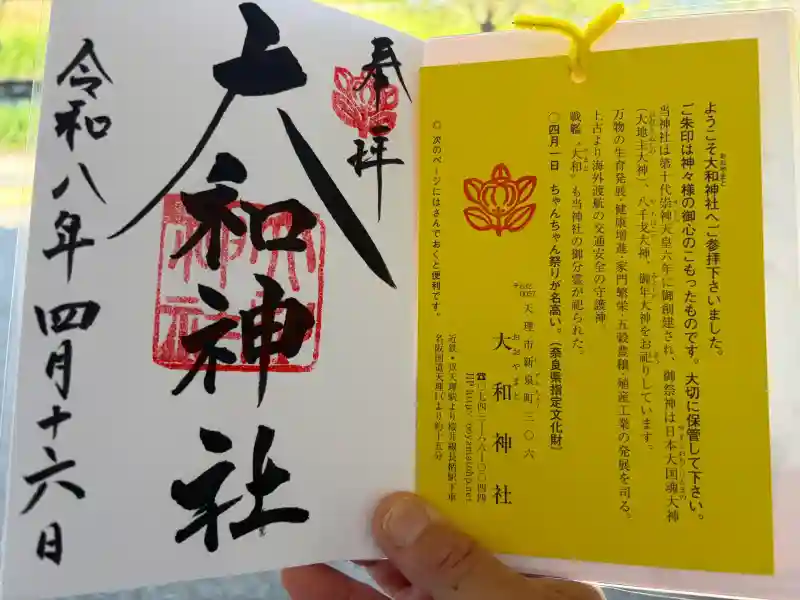 奉拝
大和神社
令和八年四月十六日
ようこそ大和神社へご参拝下さいました。
ご朱印は神々様の御心のこもったものです。大切に保管して下さい。
当神社は第十代崇神天皇六年に御創建され、御祭神は日本大国魂大神
(大地主大神)、八千戈大神、御年大神をお祀りしています。
万物の生育発展・健康増進・家門繁栄・五穀豊穣・殖産工業の発展を司る。
上古より海外渡航の交通安全の守護神。
戦艦“大和”も当神社の御分霊が祀られた。
〇四月一日 ちゃんちゃん祭りが名高い。(奈良県指定文化財)
〒632-0057 天理市新泉町三〇六
大和神社
おおやまと
☎〇七四三-六六-〇〇四四
近鉄・JR天理駅より桜井線長柄駅下車
名阪国道天理ICより約十五分
◎ 次のページにはさんでおくと便利です。